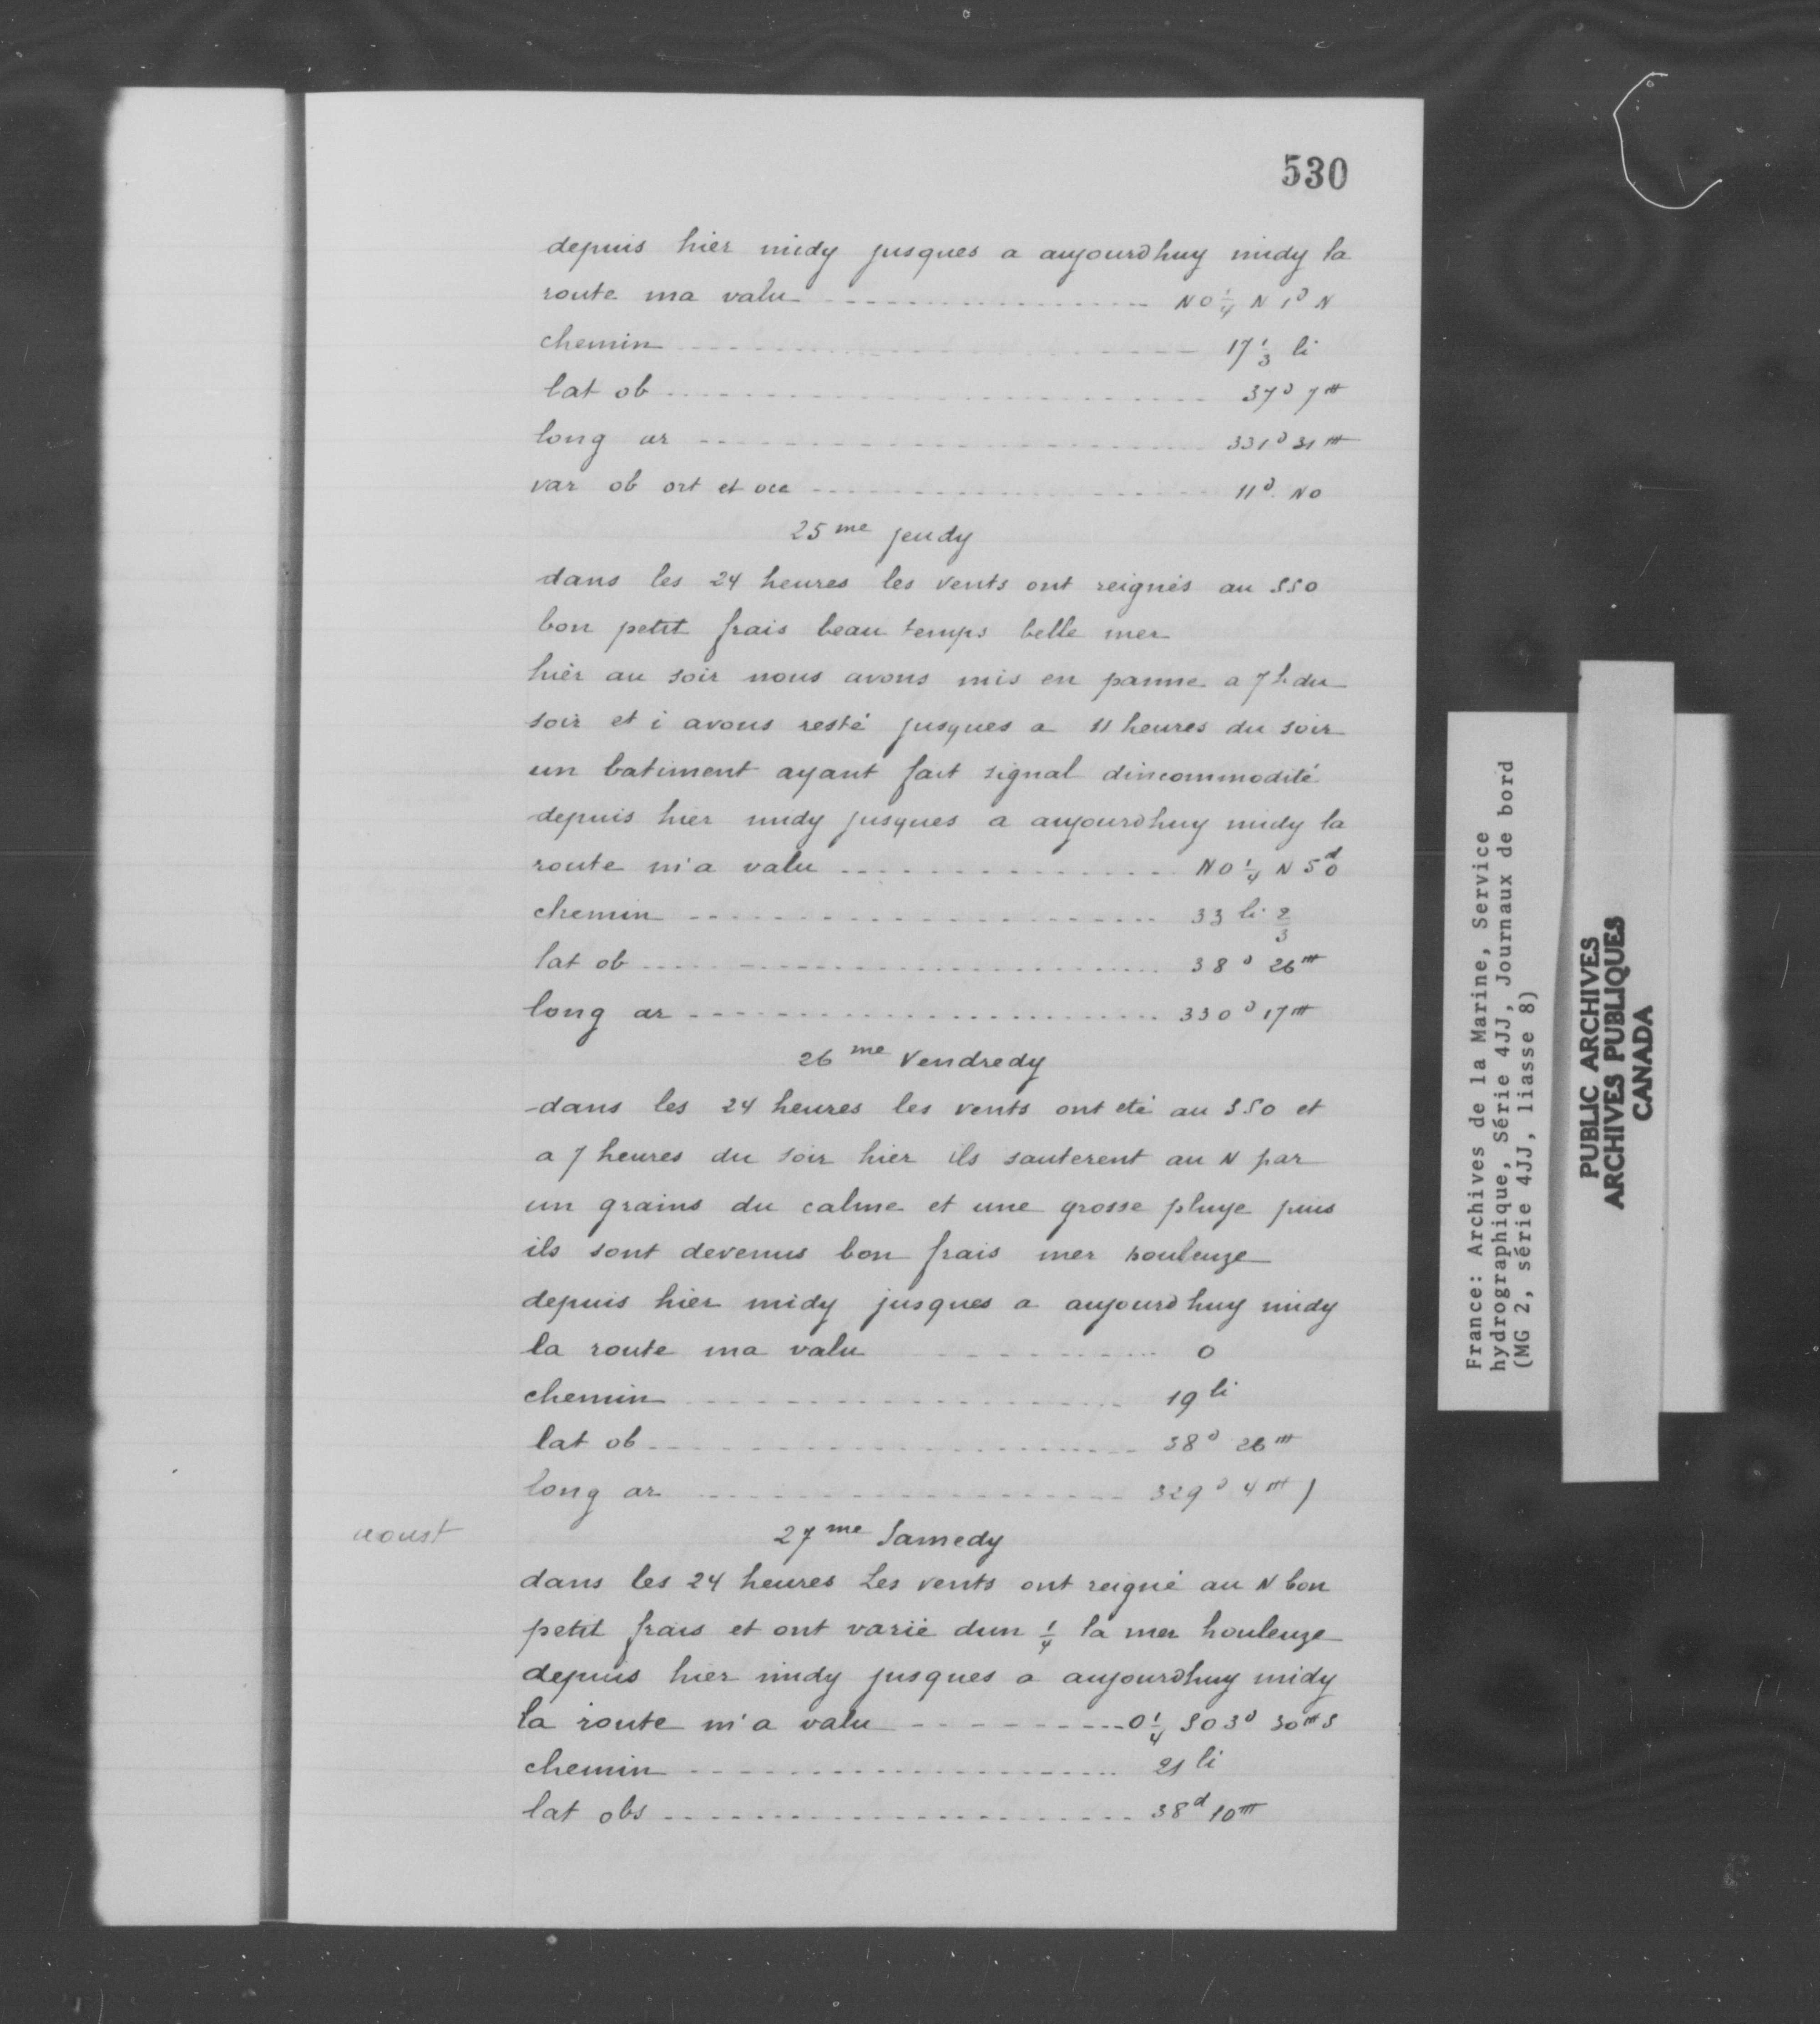 530
depuis hier midy jusques a aujourdhuy midy la
route ma valu ------------------ NO 1/4 N 1d N
chemin ------------------ 17 1/3 li
lat ob ------------------ 37d 7m
long ar ------------------ 331d 31m
var ob ort et occ ------------------ 11d NO
25me jeudy
dans les 24 heures les vents ont reignés au SSO
bon petit frais beau temps belle mer
hier au soir nous avons mis en panne a 7 h du
soir et i avons resté jusques a 11 heures du soir
un batiment ayant fait signal dincommodité
depuis hier midy jusques a aujourdhuy midy la
route m'a valu ------------------ NO 1/4 N 5d O
chemin ------------------ 33 li 2/3
lat ob ------------------ 38d 26m
long ar ------------------ 330d 17m
26me Vendredy
dans les 24 heures les vents ont eté au SSO et
a 7 heures du soir hier ils sauterent au N par
un grains du calme et une grosse pluye puis
ils sont devenus bon frais mer houleuze
depuis hier midy jusques a aujourdhuy midy
la route ma valu ------------------ O
chemin ------------------ 19 li
lat ob ------------------ 38d 26m
long ar ------------------ 329d 4m )
aoust
27me Samedy
dans les 24 heures Les vents ont reigné au N bon
petit frais et ont varié dun 1/4 la mer houleuze
depuis hier midy jusques a aujourdhuy midy
la route m'a valu ------------------ O 1/4 SO 3d 30m S
chemin ------------------ 21 li
lat obs ------------------ 38d 10m
France: Archives de la Marine, Service
hydrographique, Série 4JJ, Journaux de bord
(MG 2, série 4JJ, liasse 8)
PUBLIC ARCHIVES
ARCHIVES PUBLIQUES
CANADA